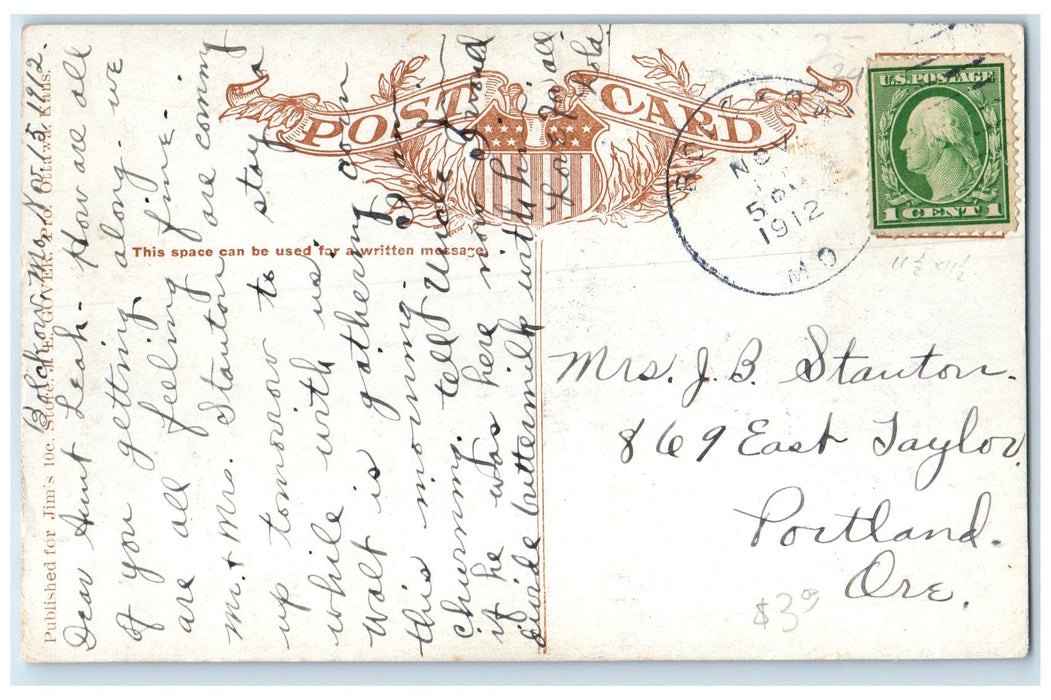 POST CARD
This space can be used for a written message.
Published for Jim's 10c. Store, J. E. GOVER, Pro. Ottawa, Kans.
Bolckow Mo. Nov. 15 1912.
Dear Aunt Leah- How are all
of you getting along. we
are all feeling fine.
Mr. + Mrs. Stanton are coming
up tomorrow to stay a
while with us.
Walt is gathering corn
this morning. I am
churning. tell Uncle J
if he was here now I would
divide buttermilk with him.
Love to all
Lola.
NOV
5 PM
1912
MO
U.S. POSTAGE
1 CENT 1
11 1/2 x 11 1/2
Mrs. J. B. Stanton.
869 East Taylor
Portland.
Ore.
$3.